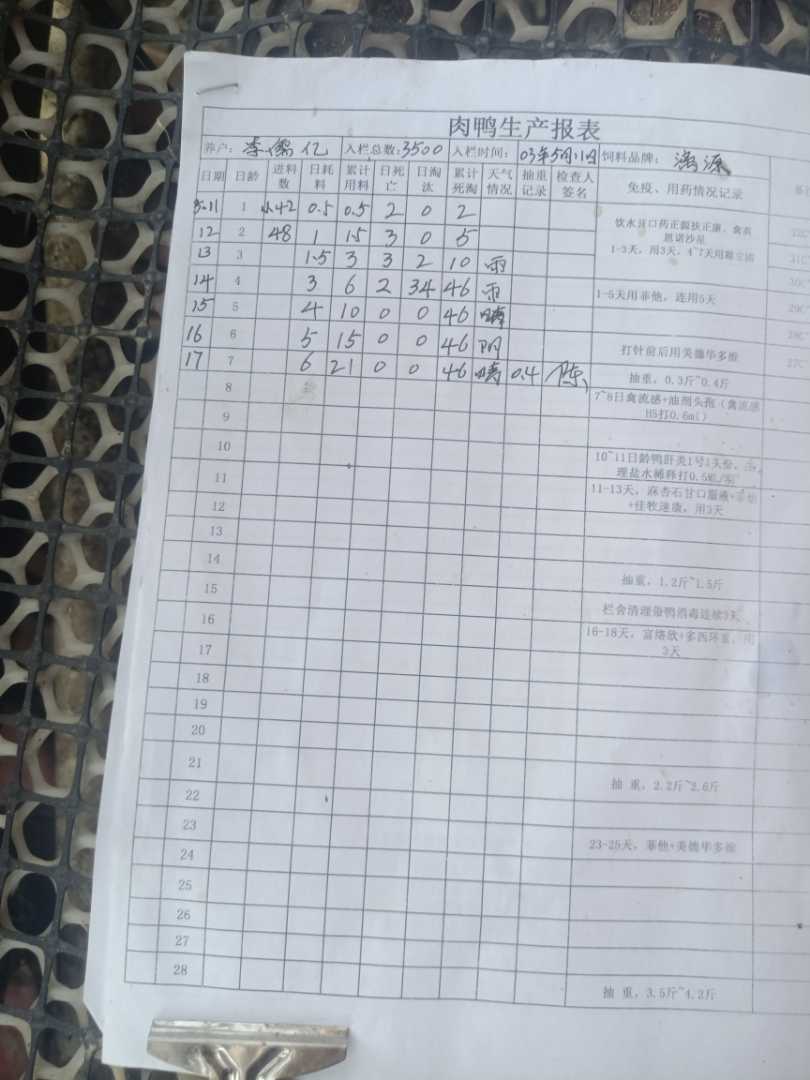 肉鸭生产报表
养户: 李儒亿 入栏总数:3500 入栏时间: 03年5月11日 饲料品牌: 漓源
日期 日龄 进料数 日耗料 累计用料 日死亡 日淘汰 累计死淘 天气情况 抽重记录 检查人签名 免疫、用药情况记录
5.11 1 小42 0.5 0.5 2 0 2
饮水开口药正源扶正康、禽炎
12 2 48 1 1.5 3 0 5
恩诺沙星
13 3 1.5 3 3 2 10 雨
1-3天，用3天，4~7天用
14 4 3 6 2 34 46 雨 1-5天用菲他，连用5天
15 5 4 10 0 0 46 晴
16 6 5 15 0 0 46 阴 打针前后用美德华多维
17 7 6 21 0 0 46 晴 0.4 陈 抽重，0.3斤~0.4斤
8 7~8日禽流感+油剂头孢（禽流感
H5打0.6ml）
9
10 10~11日龄鸭肝炎1号1头份，
理盐水稀释打0.5ML/
11 11-13天，麻杏石甘口服液+
+佳牧速康，用3天
12
13
14 抽重，1.2斤~1.5斤
15
16 栏舍清理带鸭消毒连续3天
16-18天，富络欣+多西环素，用
3天
17
18
19
20
21 抽 重，2.2斤~2.6斤
22
23 23-25天，菲他+美德华多维
24
25
26
27
28 抽 重，3.5斤~4.2斤